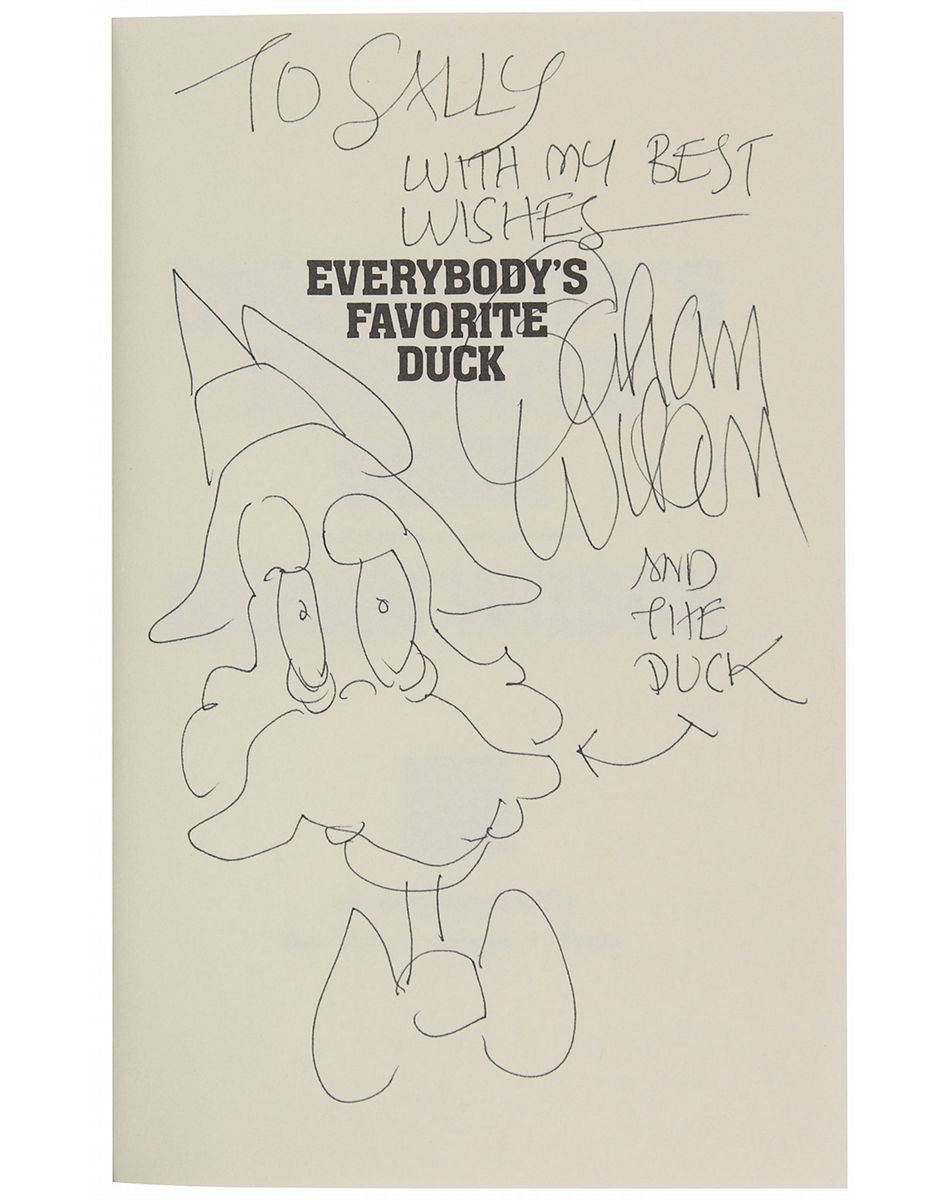 TO SALLY
WITH MY BEST
WISHES
EVERYBODY'S
FAVORITE
DUCK
Gahan
Wilson
AND
THE
DUCK